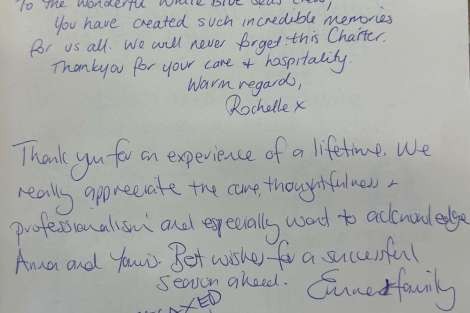 To the wonderful White Blue Seas Crew,
You have created such incredible memories
for us all. We will never forget this Charter.
Thankyou for your care + hospitality.
Warm regards,
Rochelle x
Thank you for an experience of a lifetime. We
really appreciate the care, thoughtfulness +
professionalism and especially want to acknowledge
Anna and Yanis. Best wishes for a successful
season ahead.
& family